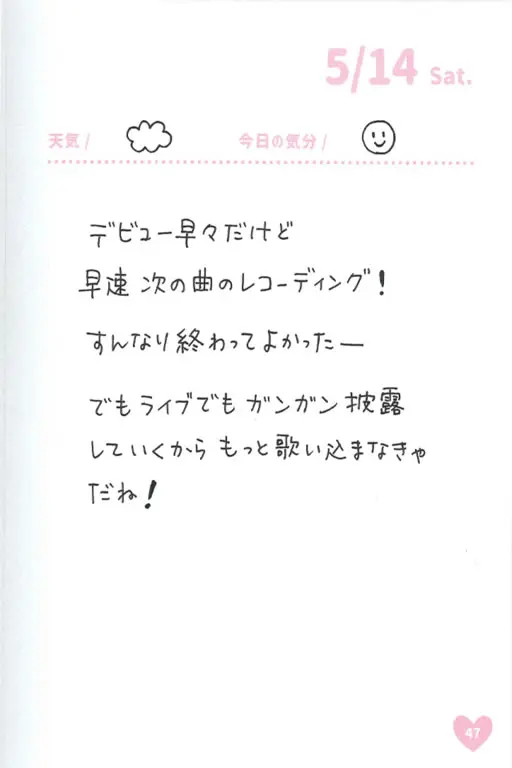 5/14 Sat.
天気/ 今日の気分/
デビュー早々だけど
早速 次の曲のレコーディング!
すんなり終わってよかったー
でもライブでもガンガン披露
していくからもっと歌い込まなきゃ
だね!
47